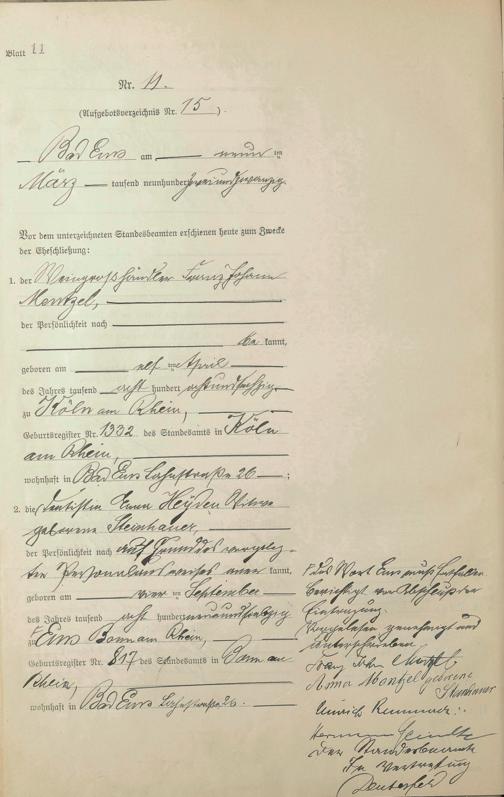 Blatt 11
Nr. 11.
(Aufgebotsverzeichnis Nr. 15).
Bad Ems am neun ten
März tausend neunhundert zweiundzwanzig
Vor dem unterzeichneten Standesbeamten erschienen heute zum Zwecke
der Eheschließung:
1. der Weingroßhändler Franz Johann
Mentzel,
der Persönlichkeit nach
be kannt,
geboren am elf ten April
des Jahres tausend acht hundert
zu Köln am Rhein,
Geburtsregister Nr. 1332 des Standesamts in Köln
am Rhein,
wohnhaft in Bad Ems Lahnstraße 26;
2. die Dentistin Heyden Witwe
geborene Steinhauer,
der Persönlichkeit nach auf Grund des vorgeleg-
ten Personalausweises aner kannt,
geboren am vier ten September
des Jahres tausend acht hundert
zu Ems Bonn am Rhein,
Geburtsregister Nr. 817 des Standesamts in Bonn am
Rhein,
wohnhaft in Bad Ems Lahnstraße 26.
das Wort Ems muß entfallen
berichtigt vor Abschluß der
Eintragung.
Vorgelesen genehmigt und
unterschrieben
Mentzel geborene
Steinhauer
Heinrich
Hermann
Der Standesbeamte
In Vertretung